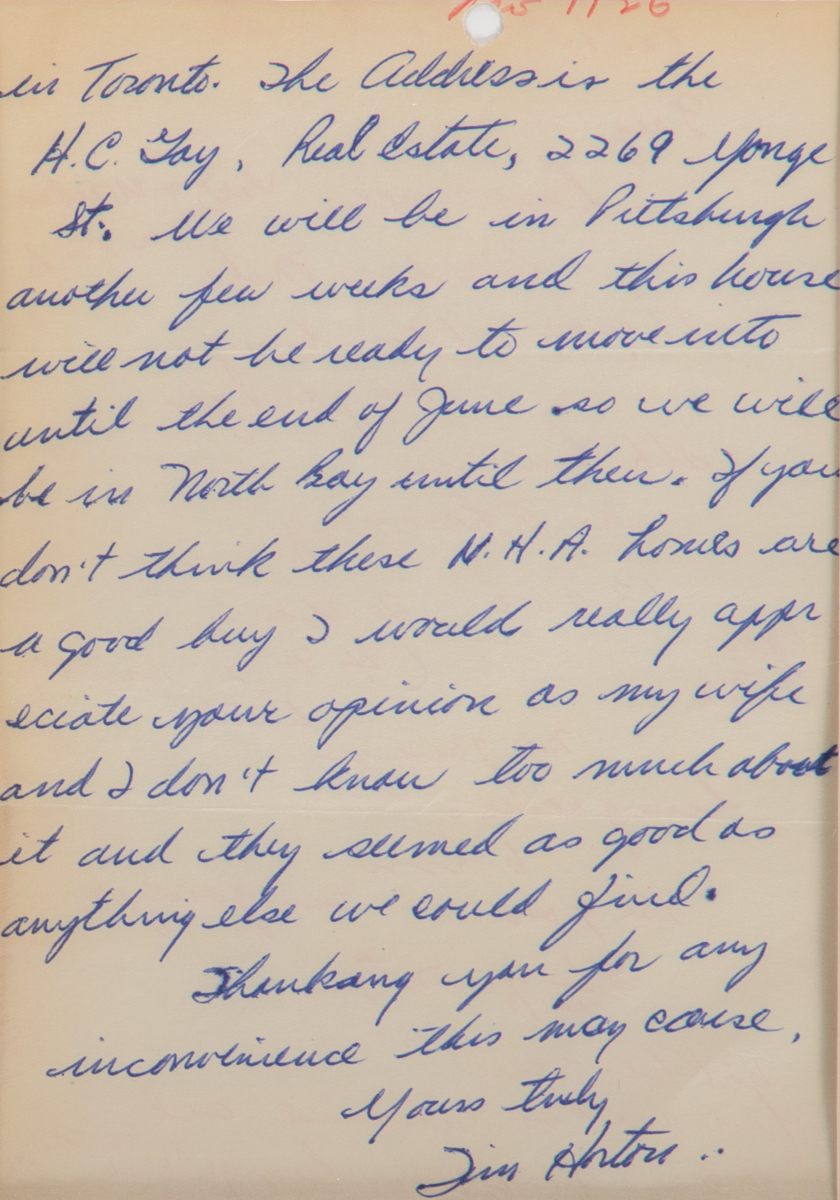 in Toronto. The Address is the
H.C. Gay, Real Estate, 2269 Yonge
St. We will be in Pittsburgh
another few weeks and this house
will not be ready to move into
until the end of June so we will
be in North Bay until then. If you
don't think these N.H.A. homes are
a good buy I would really appr
eciate your opinion as my wife
and I don't know too much about
it and they seemed as good as
anything else we could find.
Thanksing you for any
inconvenience this may cause,
Yours truly
Tim Horton ..